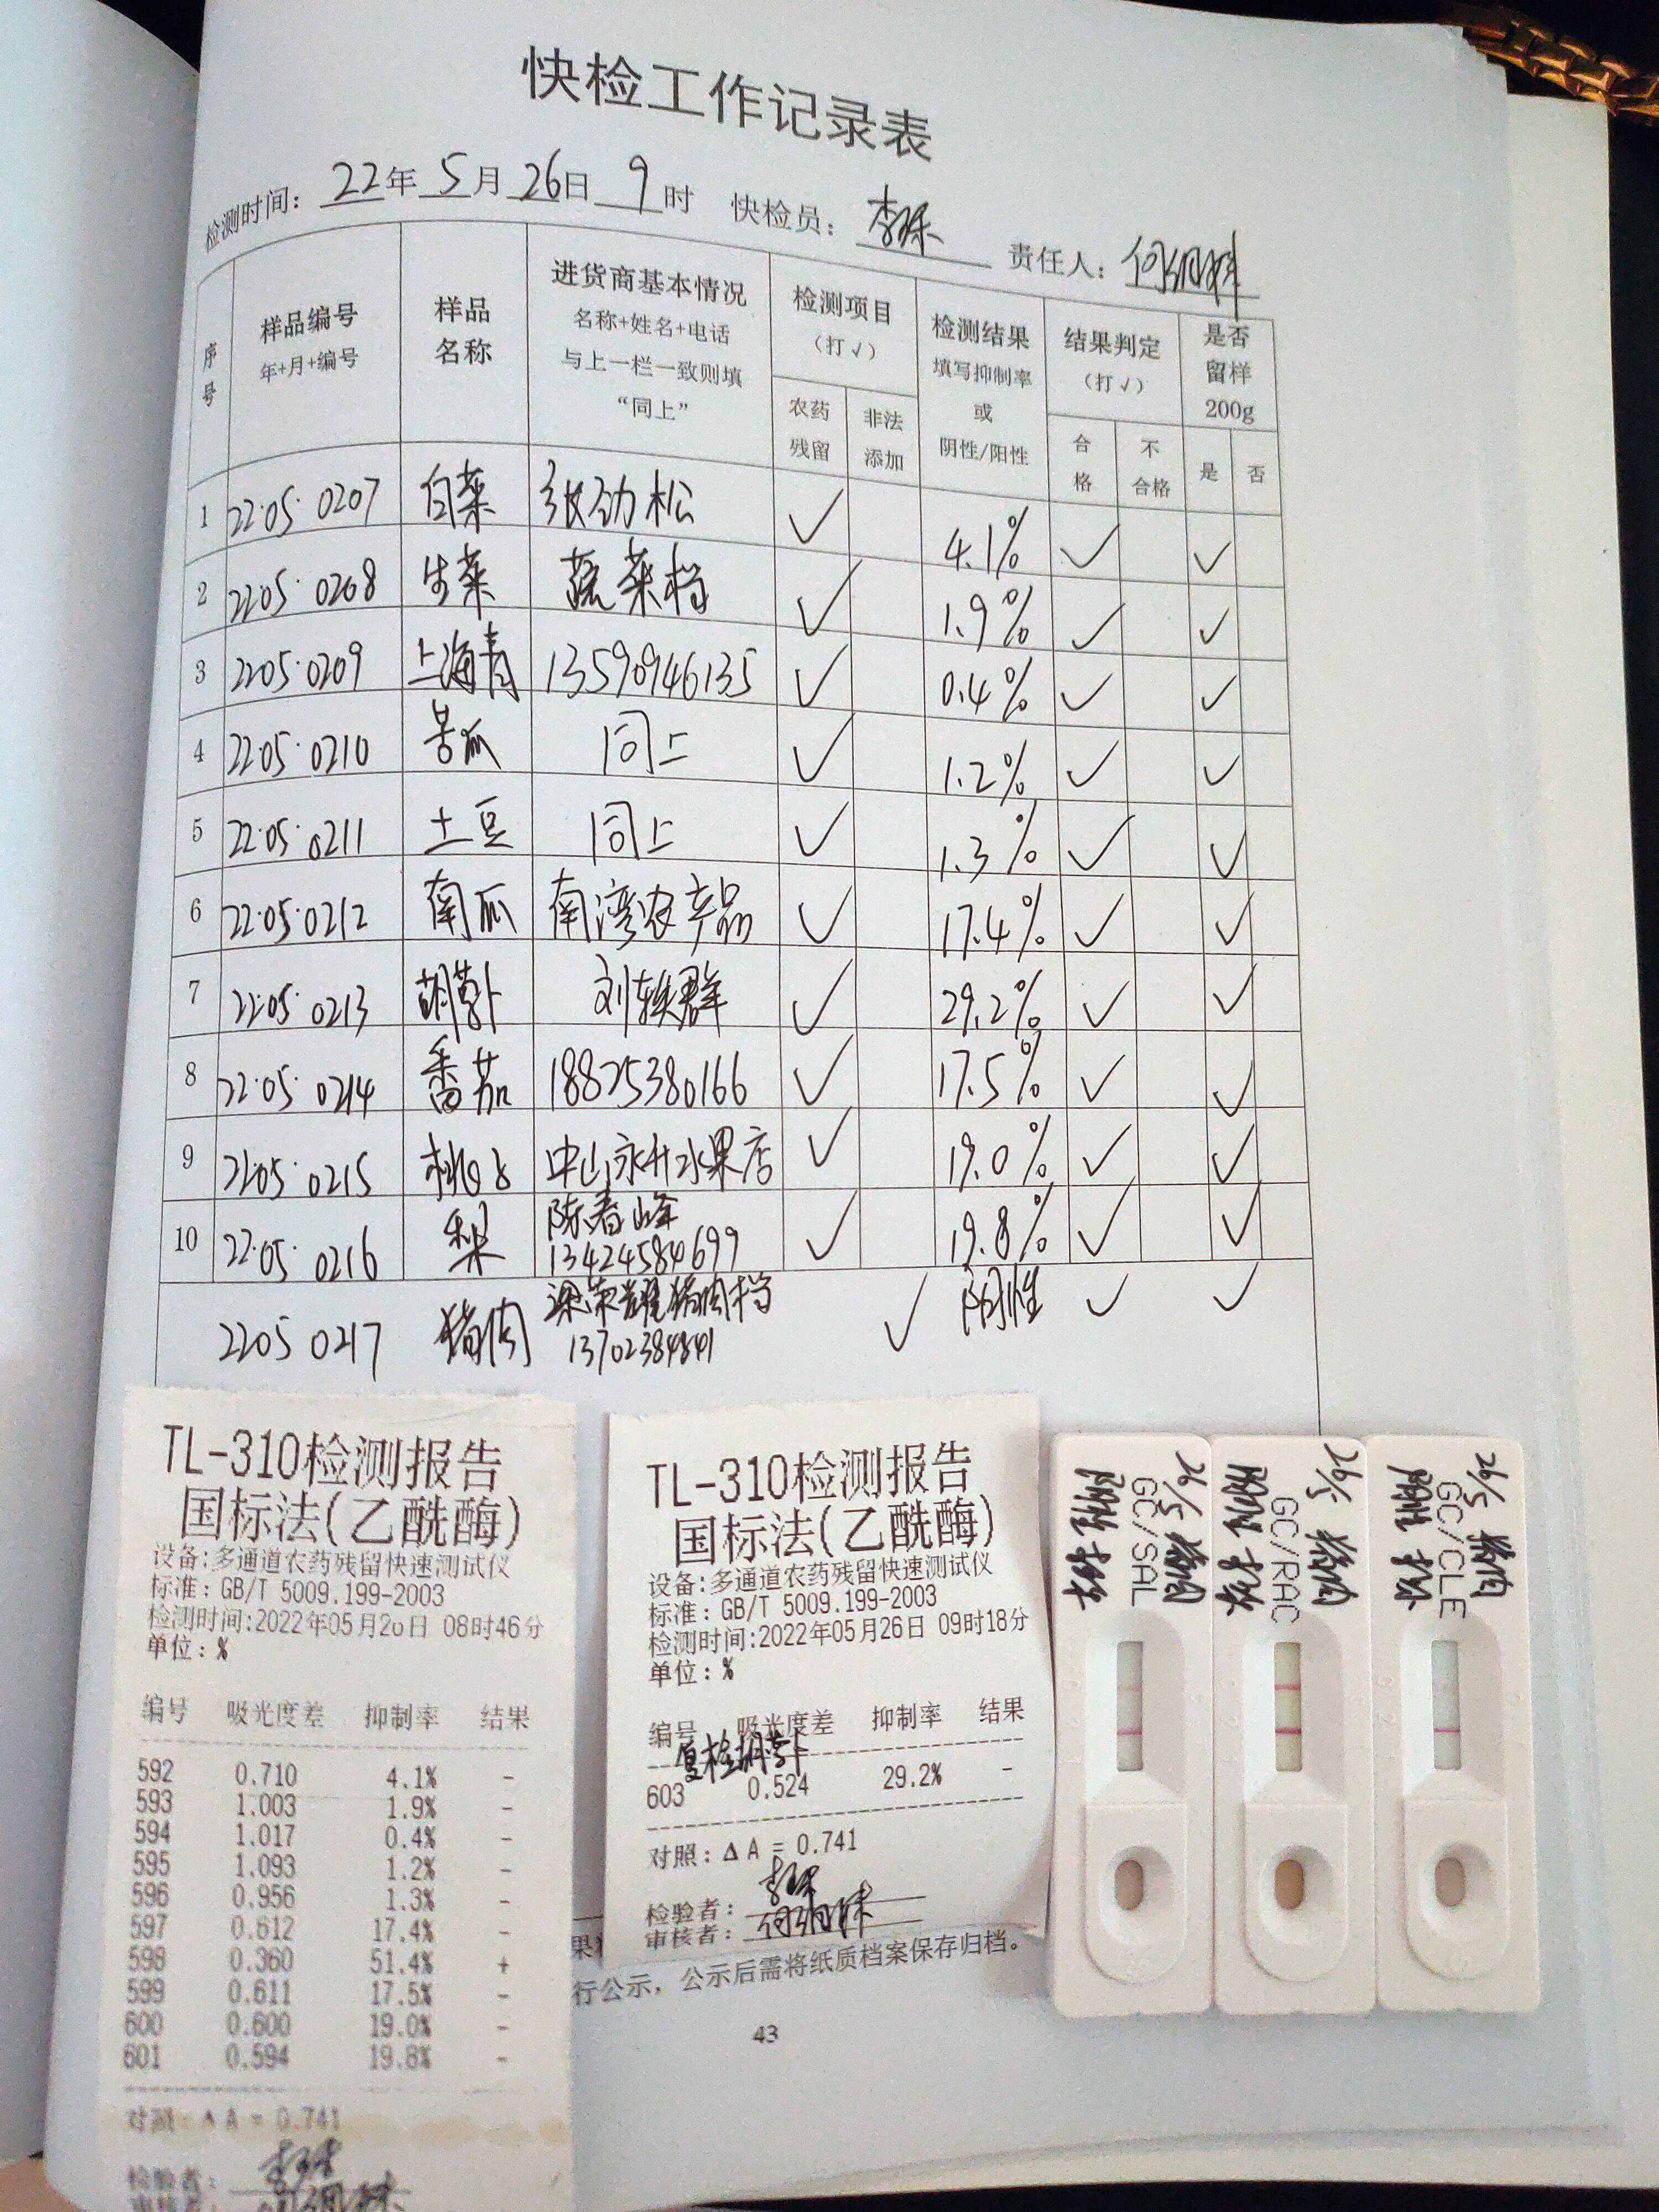 快检工作记录表
检测时间：22年5月26日9时 快检员： 责任人：
序号 样品编号 年+月+编号 样品名称 进货商基本情况 名称+姓名+电话 与上一栏一致则填“同上” 检测项目（打√） 农药残留 非法添加 检测结果 填写抑制率或阴性/阳性 结果判定（打√） 合格 不合格 是否留样200g 是 否
1 22·05·0207 白菜 张劲松 √ 4.1% √ √
2 2205·0208 生菜 蔬菜档 √ 1.9% √ √
3 2205·0209 上海青 13590946135 √ 0.4% √ √
4 22·05·0210 苦瓜 同上 √ 1.2% √ √
5 22·05·0211 土豆 同上 √ 1.3% √ √
6 22·05·0212 南瓜 南湾农产品 √ 17.4% √ √
7 22·05·0213 胡萝卜 刘轶群 √ 29.2% √ √
8 22·05·0214 番茄 18825380166 √ 17.5% √ √
9 22·05·0215 桃子 中山永升水果店 √ 19.0% √ √
10 22·05·0216 梨 陈春峰 13424584699 √ 19.8% √ √
2205 0217 猪肉 梁荣耀猪肉档 13702384841 √ 阴性 √ √
TL-310检测报告
国标法(乙酰酶)
设备:多通道农药残留快速测试仪
标准：GB/T 5009.199-2003
检测时间:2022年05月26日 08时46分
单位：%
编号 吸光度差 抑制率 结果
592 0.710 4.1% -
593 1.003 1.9% -
594 1.017 0.4% -
595 1.093 1.2% -
596 0.956 1.3% -
597 0.612 17.4% -
598 0.360 51.4% +
599 0.611 17.5% -
600 0.600 19.0% -
601 0.594 19.8% -
对照：ΔA = 0.741
检验者：
审核者：
TL-310检测报告
国标法(乙酰酶)
设备:多通道农药残留快速测试仪
标准：GB/T 5009.199-2003
检测时间:2022年05月26日 09时18分
单位：%
编号 吸光度差 抑制率 结果
复检胡萝卜
603 0.524 29.2% -
对照：ΔA = 0.741
检验者：
审核者：
行公示，公示后需将纸质档案保存归档。
43
26/5 猪肉
GC/SAL
阴性
26/5 猪肉
GC/RAC
阴性
26/5 猪肉
GC/CLE
阴性